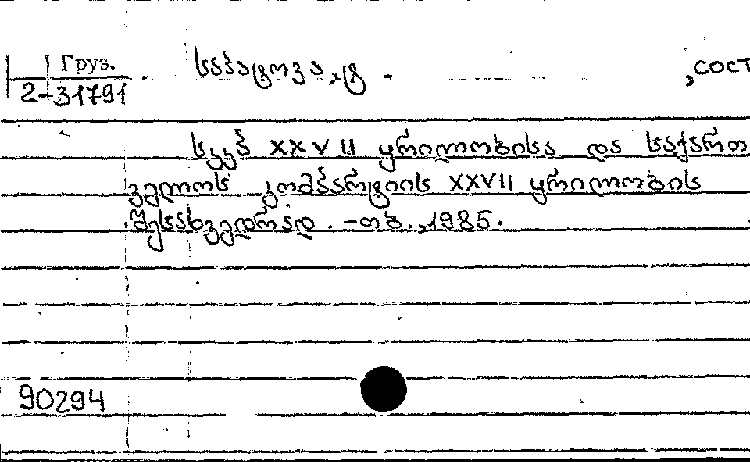 Груз.
2-31791
საბაგოვა, ტ. , сост
სკკპ XXVII ყრილობისა და საქართ
ველოს კომპარტიის XXVII ყრილობის
შესახვედრად. - თბ., 1985.
90294